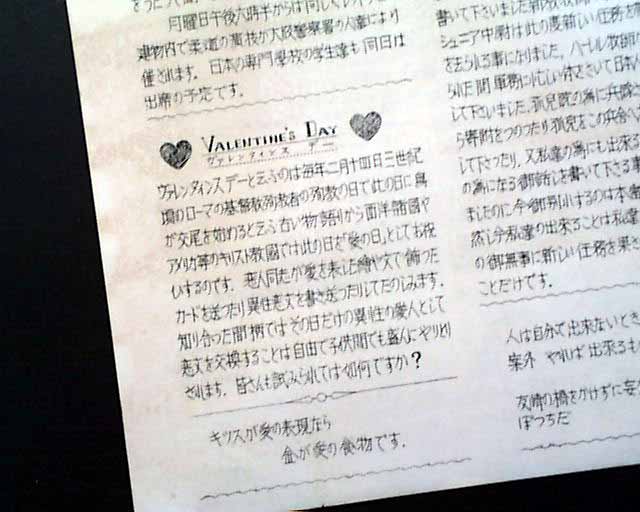 月曜日午後六時半からは同じ
建物内で柔道の演技が大阪警察署の人達により
催されます。日本の専門學校の学生達も同日は
出席の予定です。
VALENTINE'S DAY
ヴァレンタインス デー
ヴァレンタインスデーと云ふのは毎年二月十四日三世紀
頃のローマの基督教殉教者の殉教の日で此の日に鳥
が交尾を始めると云ふ古い物語りから西洋諸國や
アメリカ等のキリスト教國では此の日を「愛の日」としてお祝
ひするのです。恋人同志が愛を表した繪や文で飾った
カードを送ったり異性恋文を書き送ったりしてたのしみます。
知り合った間柄ではその日だけの異性の愛人として
恋文を交換することは自由で子供間でも盛んにやりとり
されます。皆さんも試みられては如何ですか?
キッスが愛の表現なら
金が愛の食物です。
書いて下さいました
ジュニア中尉は此の度新しい任務を
を去られる事になりました。
られた間軍務に忙しい
して下さいました。孤児院の為に兵隊さ
ら寄附をつのったり孤児をこの兵舎に
して下さったり、又私達の為にも出来る
の為になる御話しを書いて下さる
ましたのに今御別れするのは本當
然し今私達の出来ることは私達
の御無事に新しい任務を果さ
ことだけです。
人は自分で出来ないとき
案外 やれば出来るも
友情の橋をかけずに
ぼっちだ